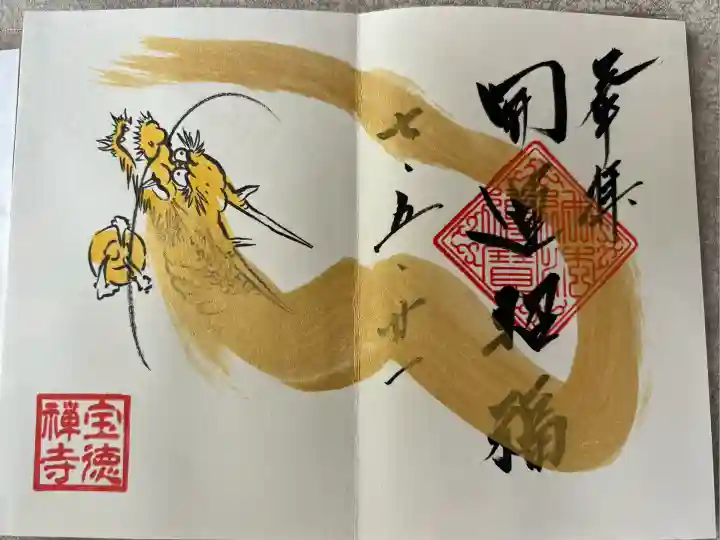 奉拝
開運招福
七、五、廿一
宝徳
禅寺